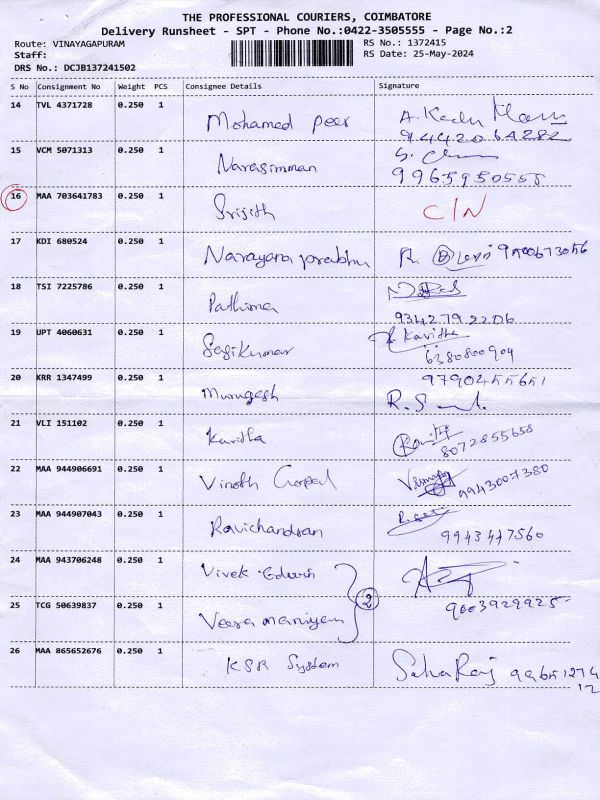 THE PROFESSIONAL COURIERS, COIMBATORE
Delivery Runsheet - SPT - Phone No.:0422-3505555 - Page No.:2
Route: VINAYAGAPURAM RS No.: 1372415
Staff: RS Date: 25-May-2024
DRS No.: DCJB137241502
S No Consignment No Weight PCS Consignee Details Signature
14 TVL 4371728 0.250 1 Mohamed peer
9442064282
15 VCM 5071313 0.250 1 Narasimman
9965950555
16 MAA 703641783 0.250 1 Srijith C/N
17 KDI 680524 0.250 1 Narayana prabhu R.
18 TSI 7225786 0.250 1 Pathima
9342792206
19 UPT 4060631 0.250 1 Sasikumar Kavitha
6380800904
20 KRR 1347499 0.250 1 Murugesh 9790455651
21 VLI 151102 0.250 1 Kavitha 8072855658
22 MAA 944906691 0.250 1 Vinoth Gopal 9943007380
23 MAA 944907043 0.250 1 Ravichandran 9943447560
24 MAA 943706248 0.250 1 Vivek Edwin
2
25 TCG 50639837 0.250 1 Veera maniyan 9003929925
26 MAA 865652676 0.250 1 KSR System